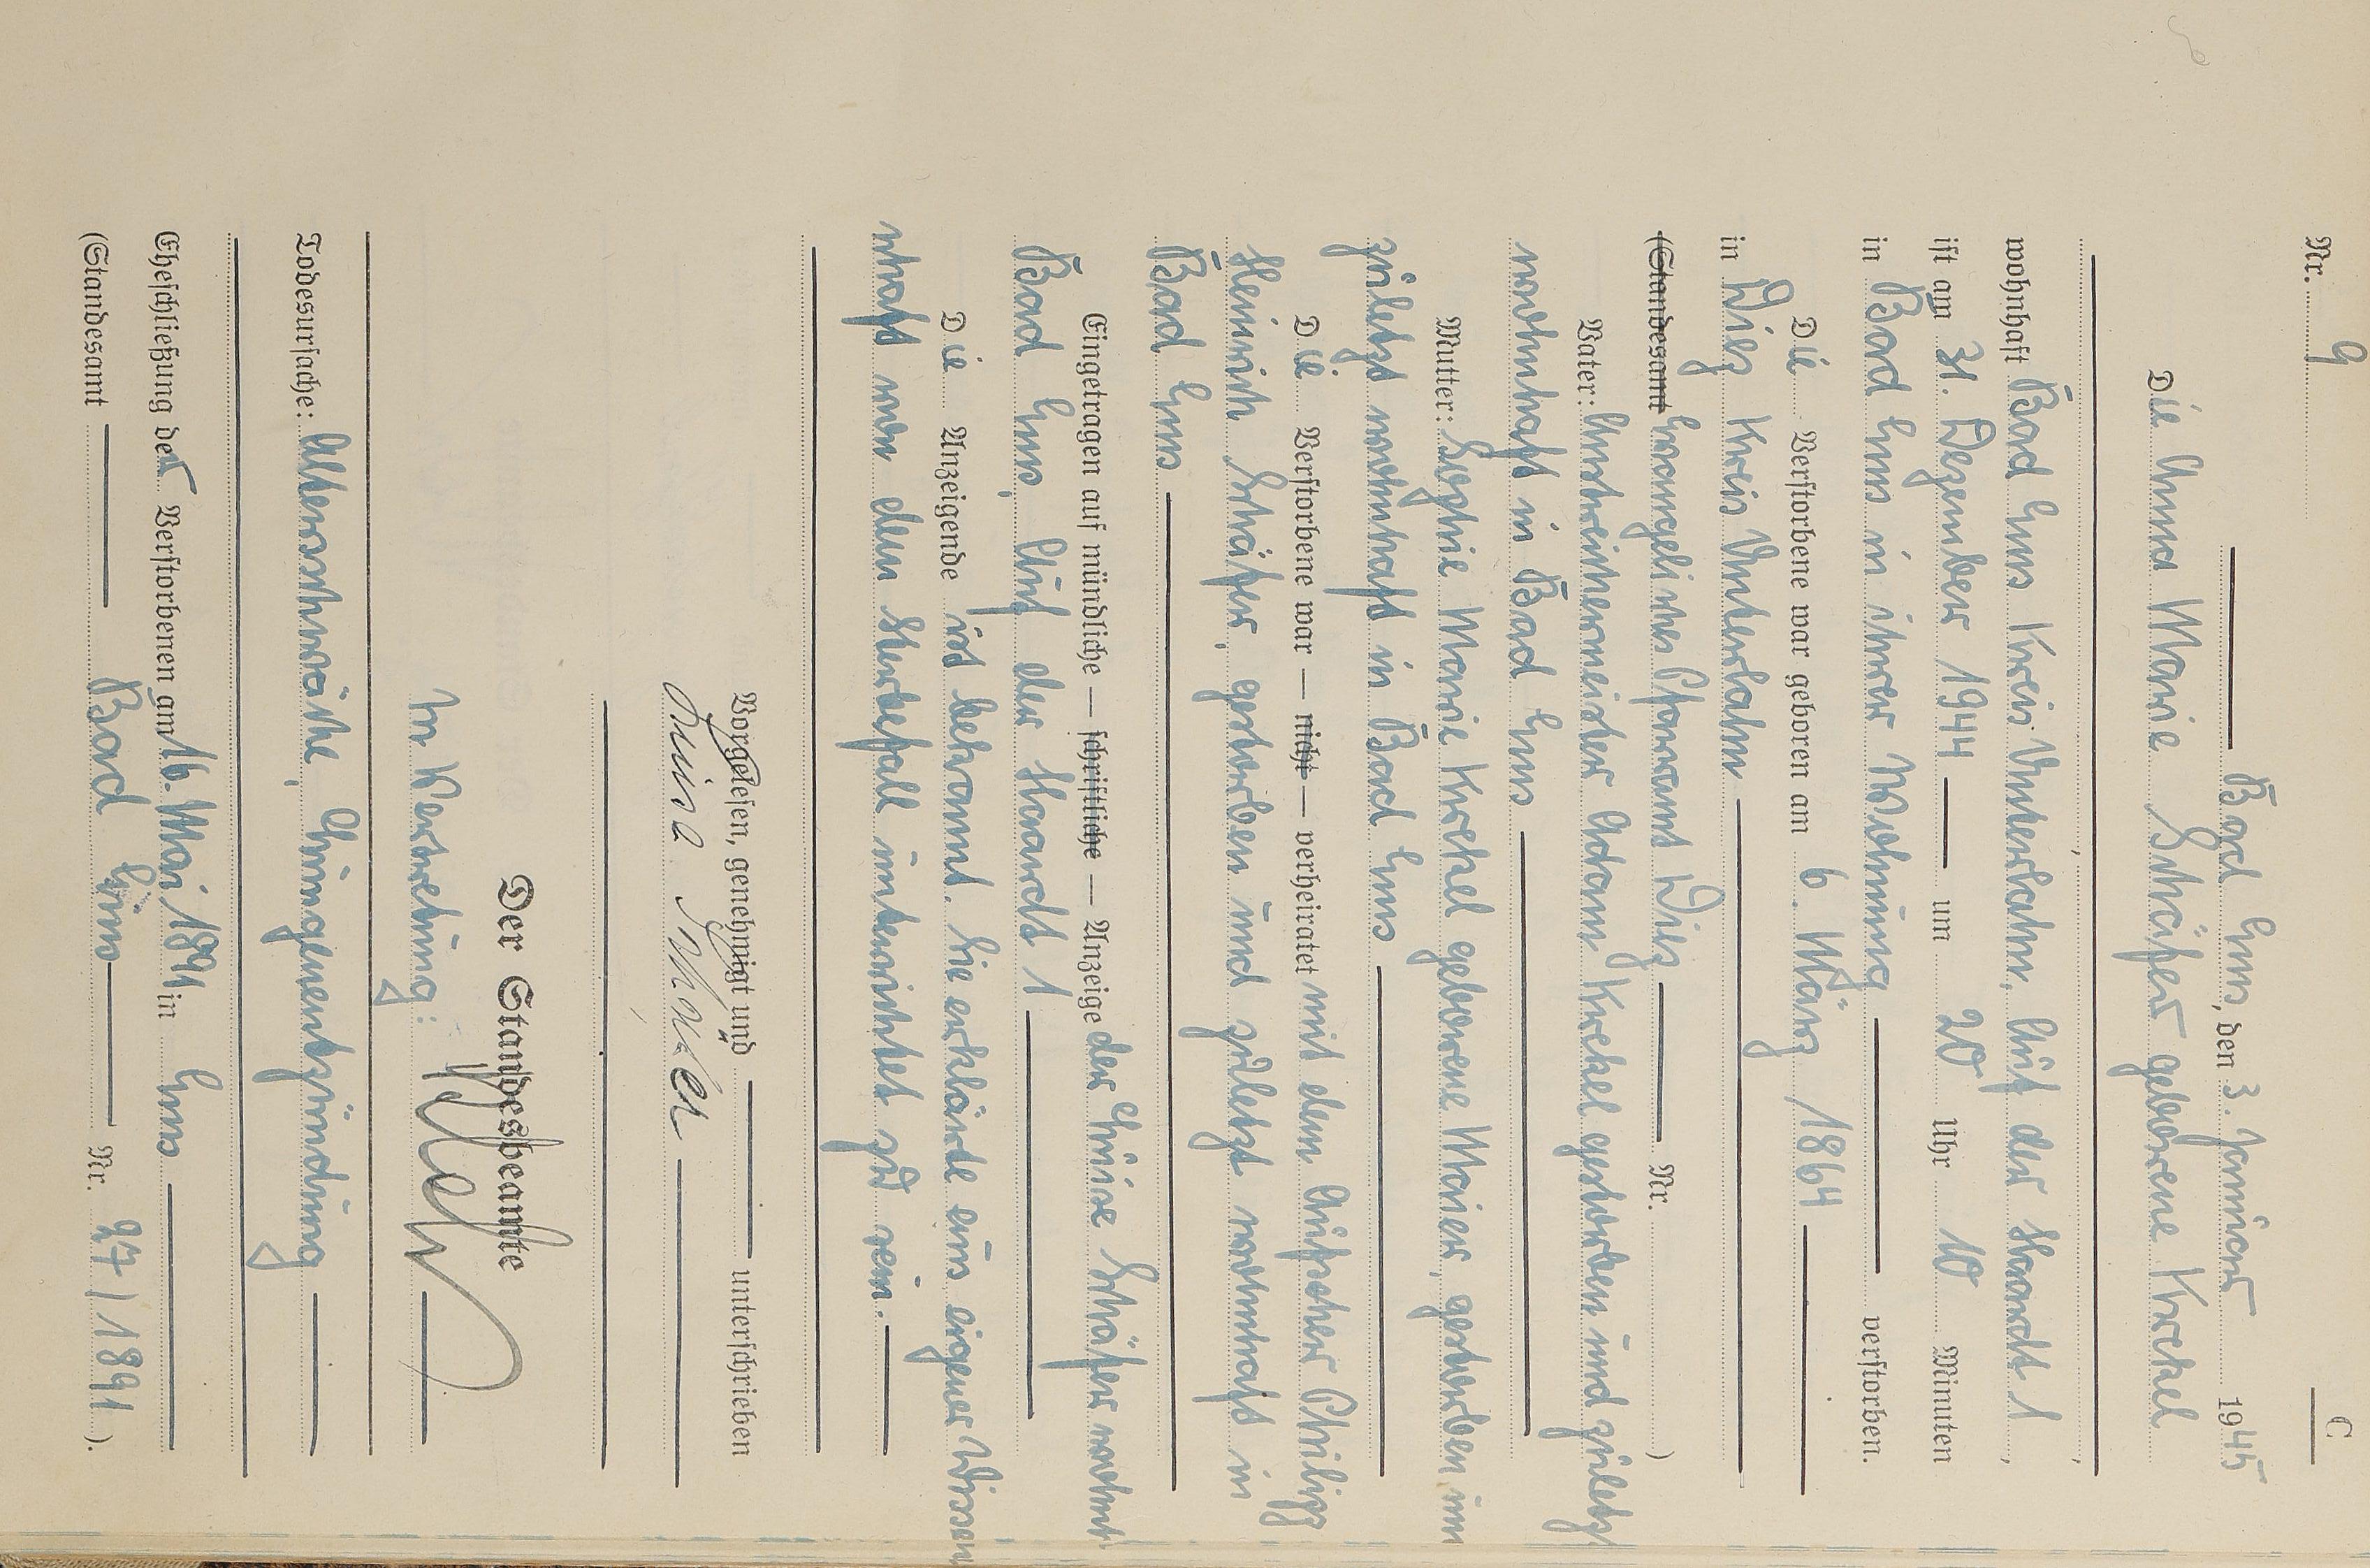 Nr. 9
C
Bad Ems, den 3. Januar 1945
Die Anna Marie Schäfer geborene Krekel
wohnhaft Bad Ems Kreis Unterlahn, Auf der Haardt 1
ist am 31. Dezember 1944 um 20 Uhr 10 Minuten
in Bad Ems in ihrer Wohnung verstorben.
Die Verstorbene war geboren am 6. März 1864
in Diez Kreis Unterlahn
(Standesamt Evangelisches Pfarramt Diez Nr. )
Vater: Anstreichermeister Adam Krekel gestorben und zuletzt
wohnhaft in Bad Ems
Mutter: Sophie Marie Krekel geborene Maier, gestorben und
zuletzt wohnhaft in Bad Ems
Die Verstorbene war — nicht — verheiratet mit dem Aufseher Philipp
Heinrich Schäfer, gestorben und zuletzt wohnhaft in
Bad Ems
Eingetragen auf mündliche — schriftliche — Anzeige der Luise Schäfer wohnhaft
Bad Ems, Auf der Haardt 1
Die Anzeigende ist bekannt. Sie erklärte aus eigener Wissen-
schaft von dem Sterbefall unterrichtet zu sein.
Vorgelesen, genehmigt und unterschrieben
Luise Schäfer
Der Standesbeamte
In Vertretung:
Todesursache: Altersschwäche, Lungenentzündung
Eheschließung der Verstorbenen am 16. Mai 1891 in Ems
(Standesamt Bad Ems Nr. 27/1891).